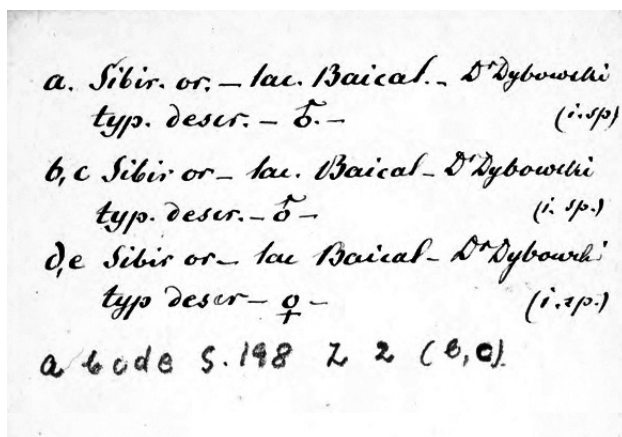 a. Sibir. or. – lac. Baical. – Dr Dybowski
typ. descr. – ♂. – (i. sp)
b, c Sibir or – lac. Baical – Dr Dybowski
typ. descr. – ♂ – (i. sp.)
d, e Sibir or – lac Baical – Dr Dybowski
typ descr – ♀ – (i. sp.)
a b c d e S. 198 Z 2 (b, c)